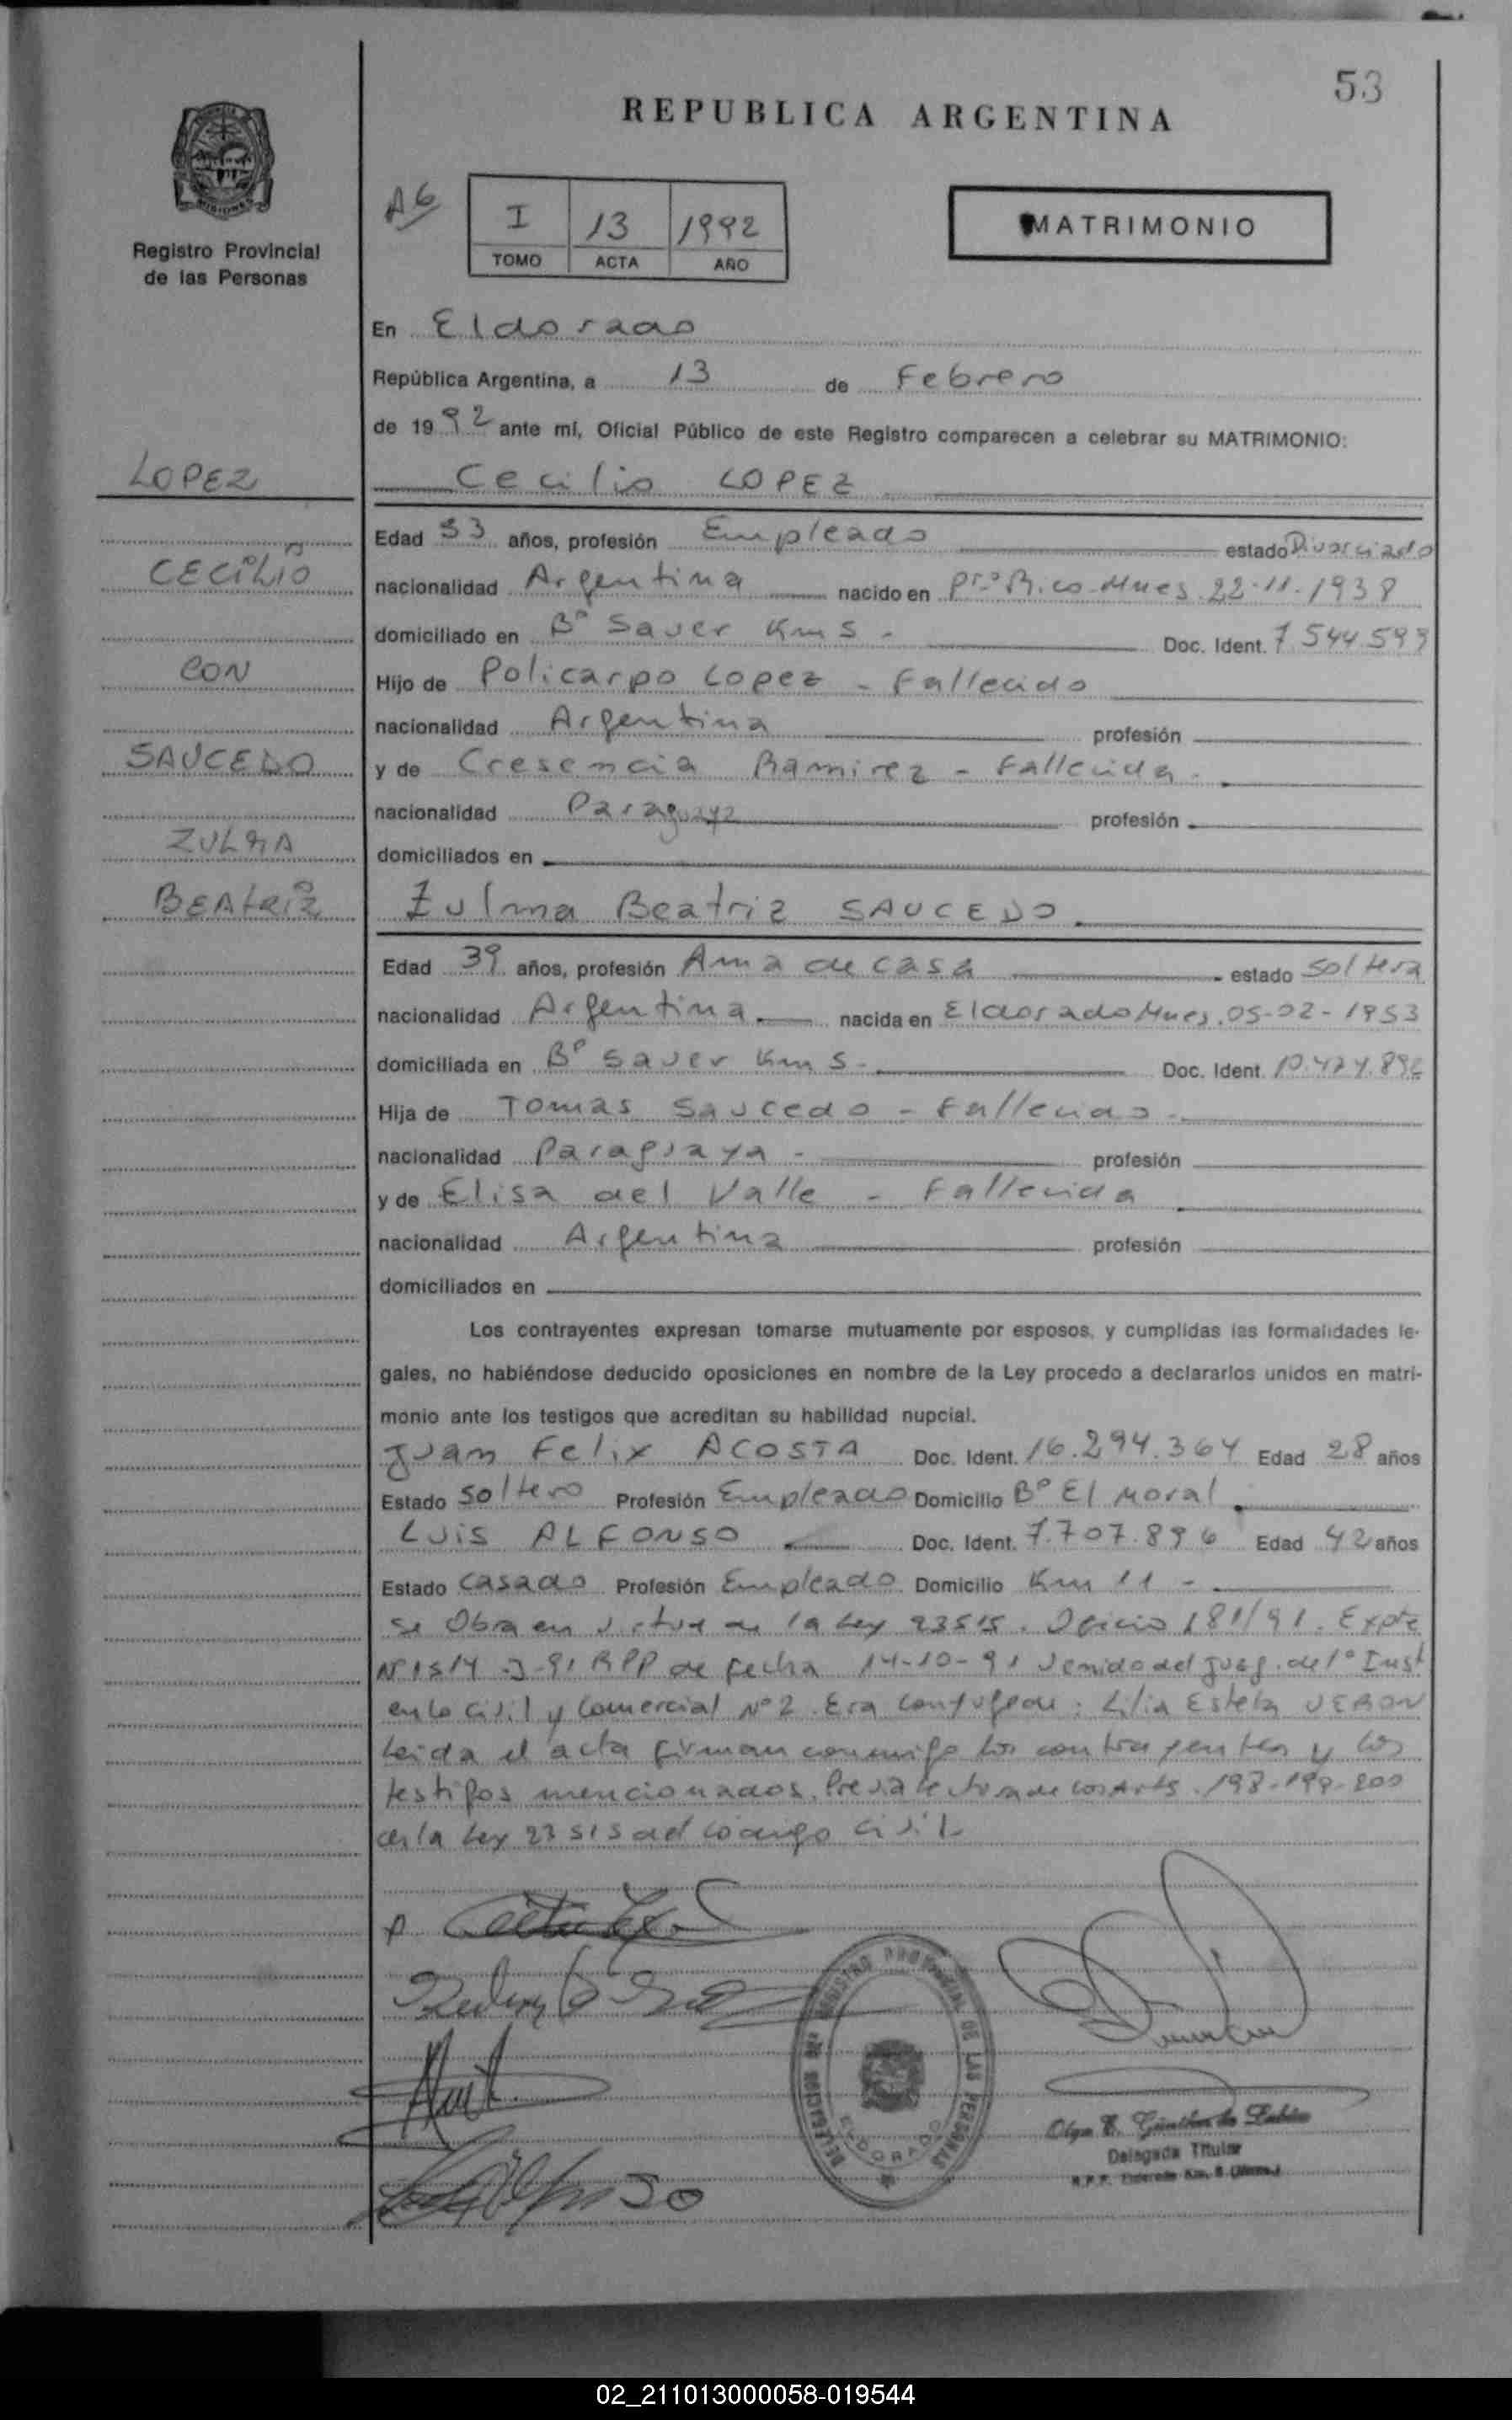 53
REPUBLICA ARGENTINA
MISIONES
Registro Provincial
de las Personas
A6
I 13 1992
TOMO ACTA AÑO
MATRIMONIO
En Eldorado
República Argentina, a 13 de Febrero
de 1992 ante mí, Oficial Público de este Registro comparecen a celebrar su MATRIMONIO:
LOPEZ
CECILIO
CON
SAUCEDO
ZULMA
BEATRIZ
Cecilio LOPEZ
Edad 53 años, profesión Empleado estado Divorciado
nacionalidad Argentina nacido en Pto Rico Mnes 22-11-1938
domiciliado en Bº Sauer Km 5 - Doc. Ident. 7.544.599
Hijo de Policarpo Lopez - Fallecido
nacionalidad Argentina profesión
y de Cresencia Ramirez - Fallecida -
nacionalidad Paraguaya profesión
domiciliados en
Zulma Beatriz SAUCEDO
Edad 39 años, profesión Ama de casa estado Soltera
nacionalidad Argentina nacida en Eldorado Mnes. 05-02-1953
domiciliada en Bº Sauer Km 5 - Doc. Ident.
Hija de Tomas Saucedo - Fallecido -
nacionalidad Paraguaya - profesión
y de Elisa del Valle - Fallecida
nacionalidad Argentina profesión
domiciliados en
Los contrayentes expresan tomarse mutuamente por esposos, y cumplidas las formalidades le-
gales, no habiéndose deducido oposiciones en nombre de la Ley procedo a declararlos unidos en matri-
monio ante los testigos que acreditan su habilidad nupcial.
Juan Felix ACOSTA Doc. Ident. 16.294.364 Edad 28 años
Estado Soltero Profesión Empleado Domicilio Bº El Moral
LUIS ALFONSO Doc. Ident. 7.707.896 Edad 42 años
Estado Casado Profesión Empleado Domicilio Km 11 -
Se Obra en virtud de la Ley 23515. Oficio 181/91. Expte
Nº 1514 -J-91 RPP de fecha 14-10-91 venido del Juzg. de 1º Inst
en lo Civil y Comercial Nº 2. Era Conyuge de: Lilia Estela VERON
Leida el acta firman conmigo los contrayentes y los
testigos mencionados. Previa lectura de los Arts. 198-199-200
de la Ley 23515 del Codigo Civil
REGISTRO PROVINCIAL DE LAS PERSONAS
DELEGACION
ELDORADO
Delegada Titular
02_211013000058-019544